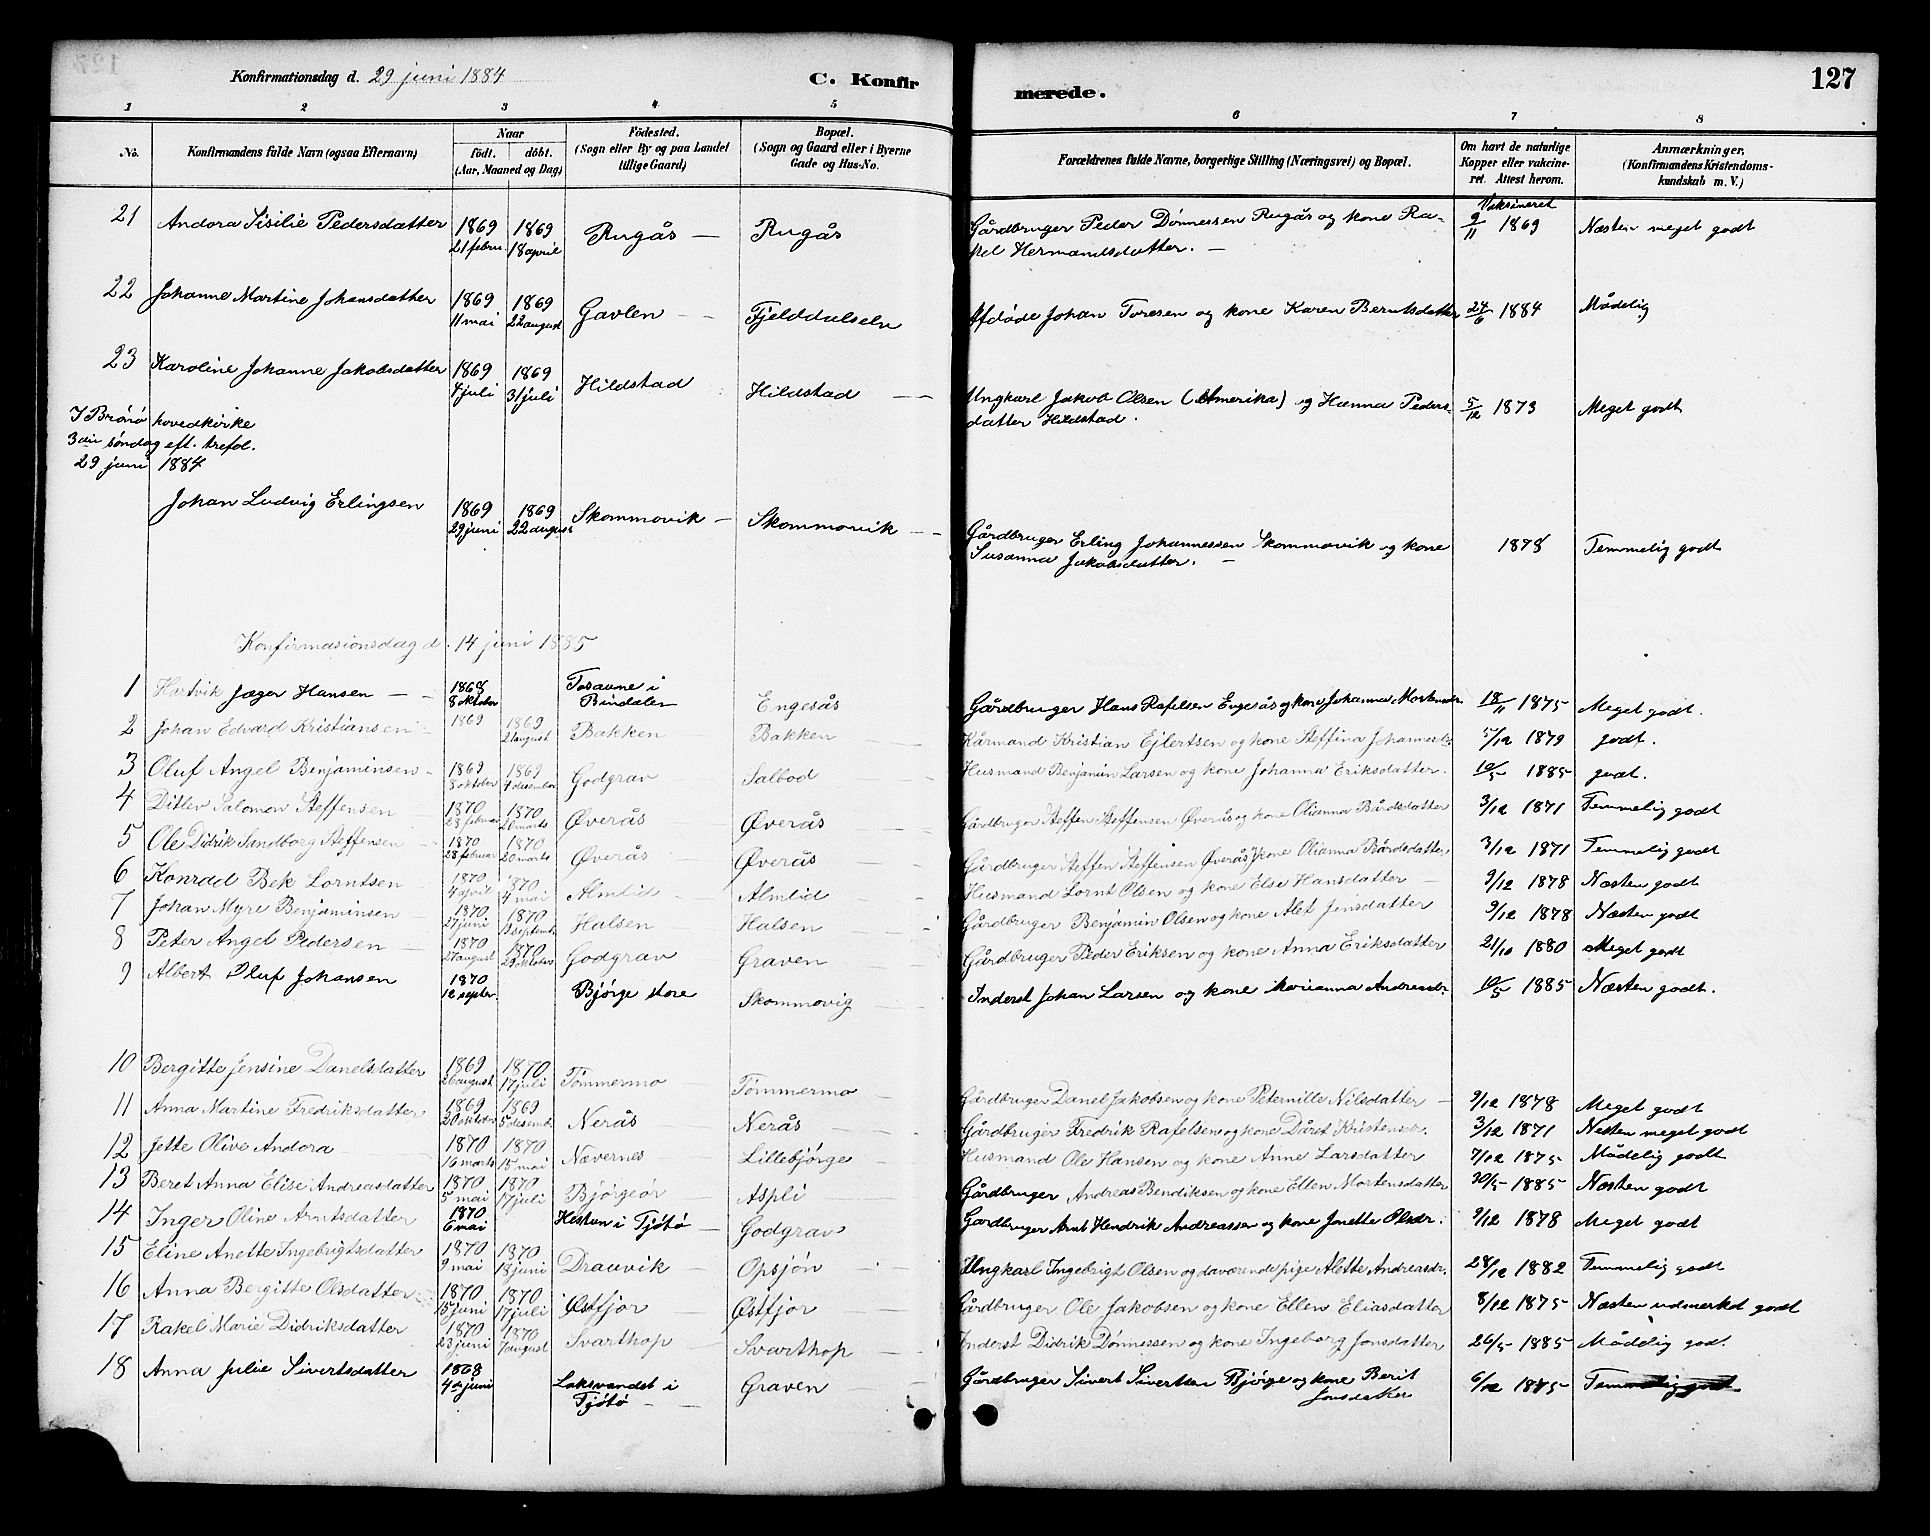 Konfirmationsdag d. 29 juni 1884 C. Konfirmerede. 127
1 2 3 4 5 6 7 8
No. Konfirmandens fulde Navn (ogsaa Efternavn) Naar födt. döbt. (Aar, Maaned og Dag) Födested. (Sogn eller By og paa Landet tillige Gaard) Bopæl. (Sogn og Gaard eller i Byerne Gade og Hus-No. Forældrenes fulde Navne, borgerlige Stilling (Næringsvei) og Bopæl. Om havt de naturlige Kopper eller vakcineret. Attest herom. Anmærkninger, (Konfirmandens Kristendomskundskab m. V.)
Vaksineret
21 Andora Sisilie Pedersdatter 1869 21 febru 1869 18 april Rugås — Rugås Gårdbruger Peder Dønnessen Rugås og kone Ra-
kel Hermandsdatter. — 9/11 1869 Næsten meget godt
22 Johanne Martine Johansdatter 1869 11 mai 1869 22 august Gavlen — Fjelddalselv Afdøde Johan Toresen og kone Karen Berntsdatter 24/6 1884 Mådelig
23 Karoline Johanne Jakobsdatter 1869 4 juli 1869 31 juli Hildstad Hildstad — Ungkarl Jakob Olsen (Amerika) og Hanna Peders-
datter Hildstad. 5/12 1873 Meget godt
I Brønø hovedkirke
3die søndag eft. trefol.
29 juni 1884
Johan Ludvig Erlingsen 1869 29 juni 1869 22 august Skommovik — Skommovik — Gårdbruger Erling Johannessen Skommovik og kone
Susanna Jakobsdatter. — 1878 Temmelig godt
Konfirmasionsdag d. 14 juni 1885
1 Hartvik Jæger Hansen — 1868 8 oktober Tosavne i Bindalen Engesås Gårdbruger Hans Rafelsen Engesås og kone Johanna Mortensdr. 18/11 1875 Meget godt.
2 Johan Edvard Kristiansen 1869 1869 21 august Bakken — Bakken — Kårmand Kristian Ejlertsen og kone Steffina Johannesdr. 5/12 1879 godt.
3 Oluf Angel Benjaminsen 1869 8 oktober 1869 4 desember Godgrav Salbod Husmand Benjamin Larsen og kone Johanna Eriksdatter. 10/5 1885 godt.
4 Ditlev Salomon Steffensen 1870 28 februar 1870 20 marts Øverås Øverås — Gårdbruger Steffen Steffensen Øverås og kone Olianna Bårdsdatter 3/12 1871 Temmelig godt
5 Ole Didrik Sandborg Steffensen 1870 28 februar 1870 20 marts Øverås Øverås — Gårdbruger Steffen Steffensen Øverås kone Olianna Bårdsdatter 3/12 1871 Temmelig godt
6 Konrad Bek Lorntsen 1870 4 april 1870 4 mai Almlid Almlid Husmand Lornt Olsen og kone Else Hansdatter — 9/12 1878 Næsten godt
7 Johan Myre Benjaminsen 1870 27 juni 1870 13 septemb. Halsen Halsen — Gårdbruger Benjamin Olsen og kone Alet Jensdatter 9/12 1878 Næsten godt
8 Peter Angel Pedersen — 1870 27 august 1870 29 oktober Godgrav Graven — Gårdbruger Peder Eriksen og kone Anna Eriksdatter 21/10 1880 Meget godt
9 Albert Oluf Johansen 1870 12 septbr. Bjørge store Skommovig — Inderst Johan Larsen og kone Marianna Andreasdr. 10/5 1885 Næsten godt.
10 Bergitte Jensine Danelsdatter 1869 26 august 1870 17 juli Tømmermo Tømmermo — Gårdbruger Danel Jakobsen og kone Peternille Nilsdatter — 9/12 1878 Meget godt
11 Anna Martine Fredriksdatter 1869 20 oktober 1869 5 desemb. Nerås Nerås — Gårdbruger Fredrik Rafelsen og kone Dåret Kristensdr. 3/12 1871 Næsten meget godt
12 Jette Olive Andora — 1870 16 marts 1870 15 mai Nævernes — Lillebjørge — Husmand Ole Hansen og kone Anne Larsdatter 7/12 1875 Mådelig godt
13 Beret Anna Elise Andreasdatter 1870 5 mai 1870 17 juli Bjørgeør Aspli Gårdbruger Andreas Bendiksen og kone Ellen Mortensdatter 30/5 1885 Næsten godt
14 Inger Oline Arntsdatter 1870 6 mai Hestun i Tjøtø — Godgrav Gardbruger Arnt Hendrik Andreassen og kone Jonette Olsdr. 9/12 1878 Meget godt
15 Eline Anette Ingebrigtsdatter 1870 9 mai 1870 18 juni Drauvik — Opsjøn — Ungkarl Ingebrigt Olsen og daværende pige Alette Andreasdr. 28/12 1882 Temmelig godt
16 Anna Bergitte Olsdatter 1870 15 juni 1870 17 juli Østfjor Østfjor — Gårdbruger Ole Jakobsen og kone Ellen Eliasdatter 8/12 1875 Næsten udmerket godt
17 Rakel Marie Didriksdatter 1870 23 juni 1870 7 august Svarthop Svarthop — Inderst Didrik Dønnessen og kone Ingeborg Jonsdatter 26/5 1885 Mådelig godt.
18 Anna Julie Sivertsdatter 1868 4de juni Laksvandet i Tjøtø — Graven — Gårdbruger Sivert Sivertsen Bjørge og kone Berit
Jonsdatter 6/12 1875 Temmelig godt